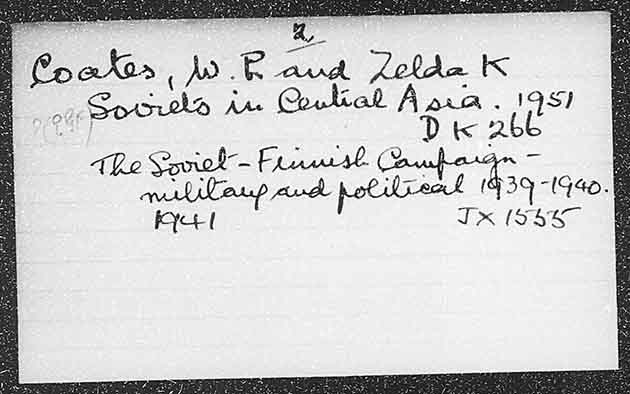 2
Coates, W. P. and Zelda K
Soviets in Central Asia. 1951
DK 266
The Soviet-Finnish Campaign -
military and political 1939-1940.
1941 JX 1555